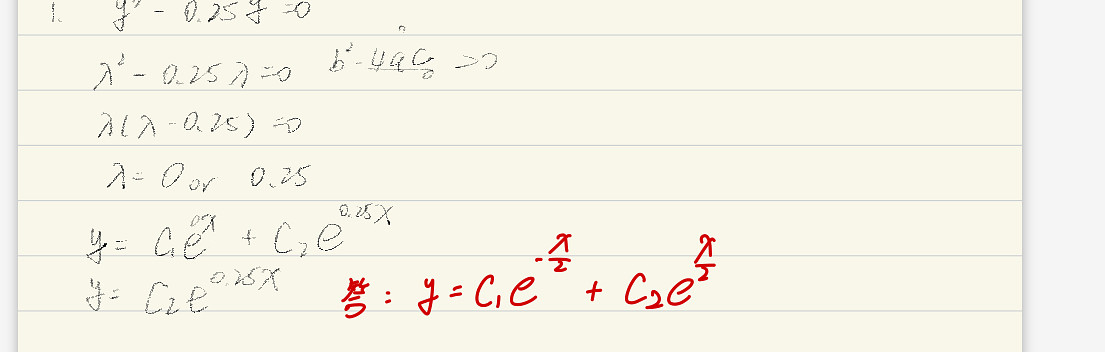 1. y'' - 0.25y = 0
λ² - 0.25λ = 0 b² - 4ac > 0
λ(λ - 0.25) = 0
λ = 0 or 0.25
y = C₁e^{0x} + C₂e^{0.25x}
y = C₂e^{0.25x} 答: y = C₁e^{-x/2} + C₂e^{x/2}